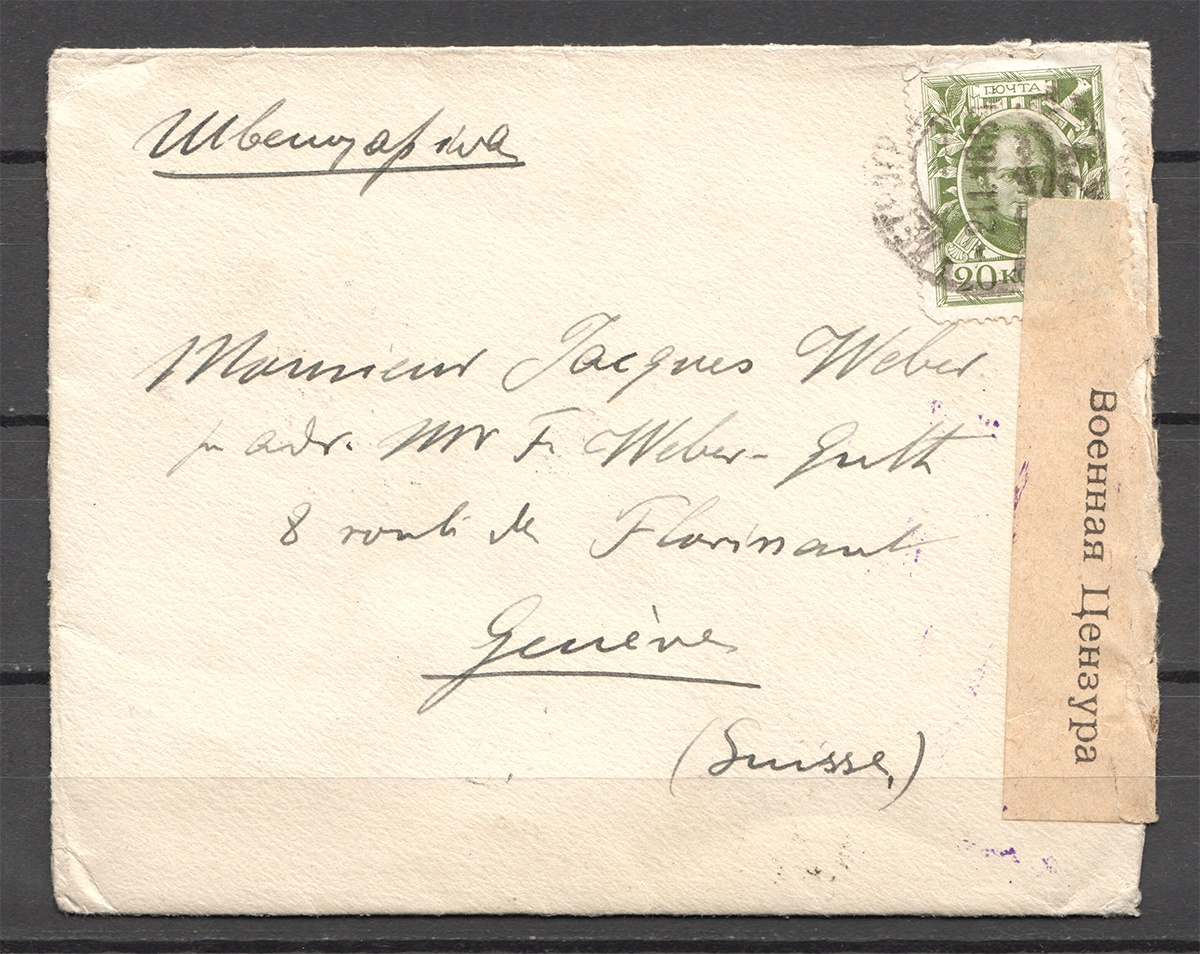 Швейцарiя
ПОЧТА
20 КО
Monsieur Jacques Weber
adr. Mr F. Weber-
8 route de Florissant
Genève
(Suisse)
Военная Цензура